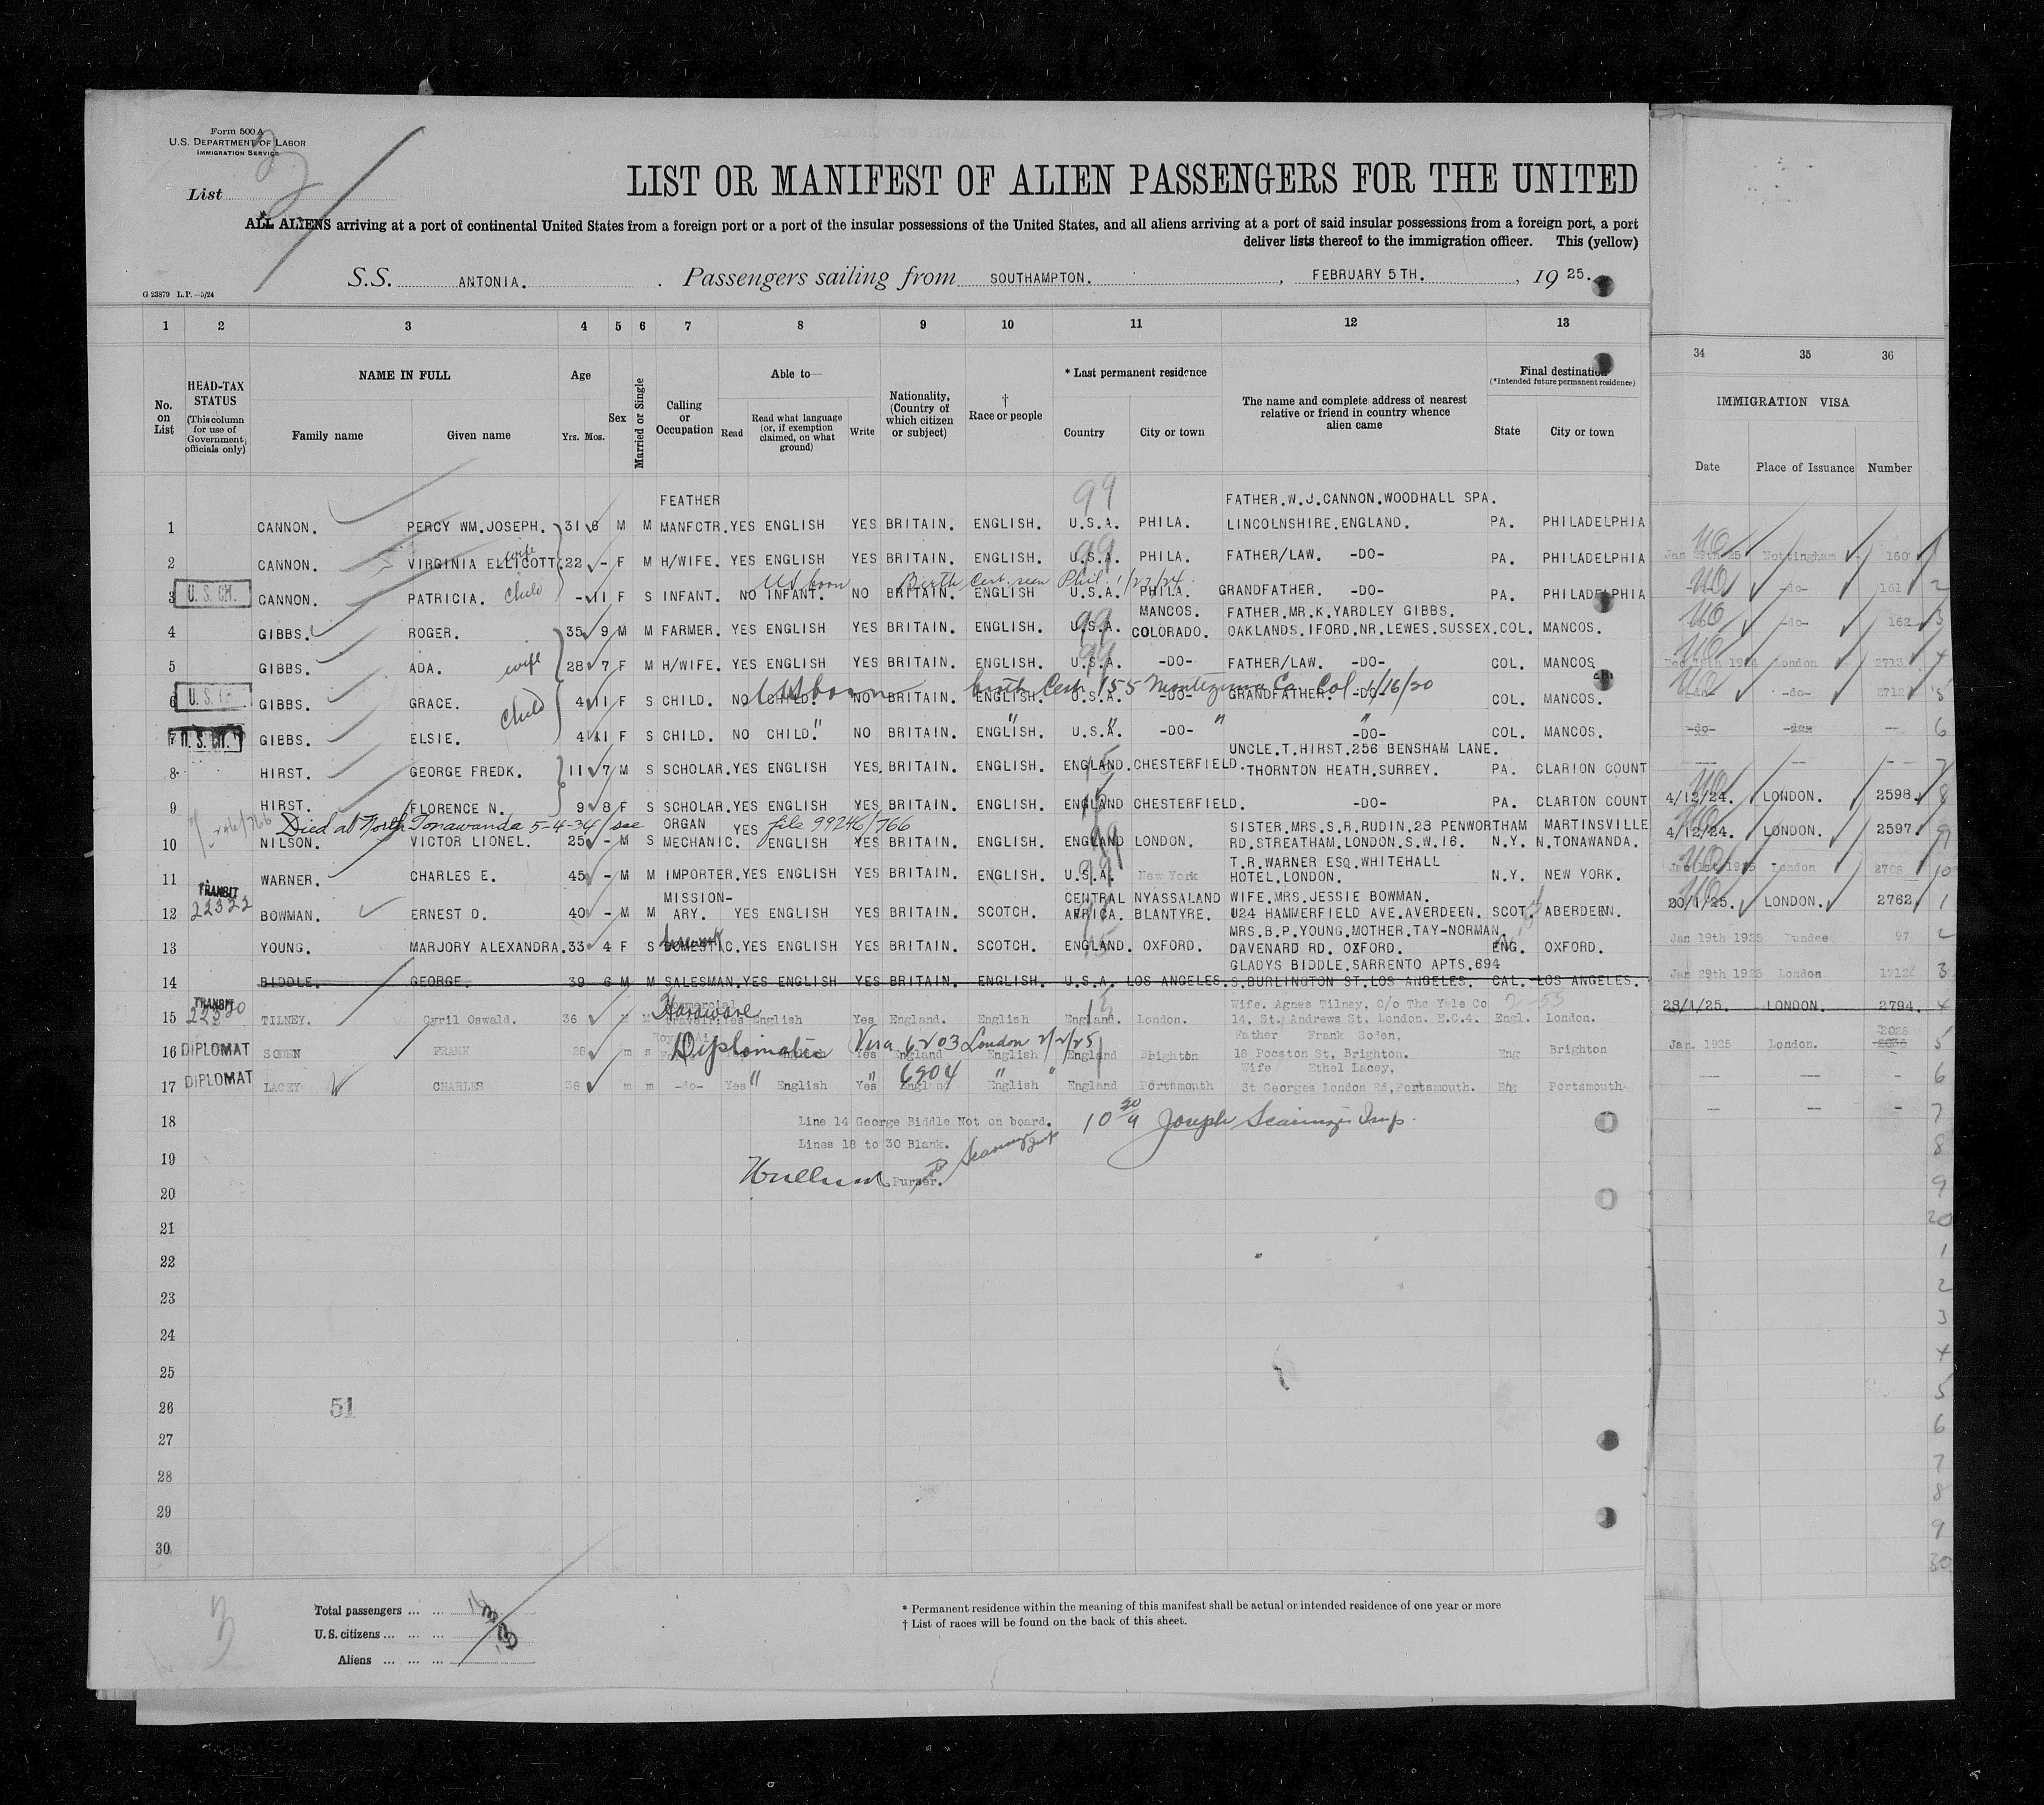 Form 500 A
U.S. DEPARTMENT OF LABOR
IMMIGRATION SERVICE
List
LIST OR MANIFEST OF ALIEN PASSENGERS FOR THE UNITED
ALL ALIENS arriving at a port of continental United States from a foreign port or a port of the insular possessions of the United States, and all aliens arriving at a port of said insular possessions from a foreign port, a port
deliver lists thereof to the immigration officer. This (yellow)
S.S. ANTONIA. Passengers sailing from SOUTHAMPTON. , FEBRUARY 5TH. , 19 25.
G 23879 L.P.—5/24
1 2 3 4 5 6 7 8 9 10 11 12 13 34 35 36
No. on List
HEAD-TAX STATUS
(This column for use of Government officials only)
NAME IN FULL
Family name Given name
Age
Yrs. Mos.
Sex
Married or Single
Calling or Occupation
Able to—
Read
Read what language (or, if exemption claimed, on what ground)
Write
Nationality, (Country of which citizen or subject)
† Race or people
* Last permanent residence
Country City or town
The name and complete address of nearest relative or friend in country whence alien came
Final destination
(*Intended future permanent residence)
State City or town
IMMIGRATION VISA
Date Place of Issuance Number
FEATHER 99 FATHER.W.J.CANNON.WOODHALL SPA.
1 CANNON. PERCY WM.JOSEPH. 31 6 M M MANFCTR. YES ENGLISH YES BRITAIN. ENGLISH. U.S.A. PHILA. LINCOLNSHIRE.ENGLAND. PA. PHILADELPHIA
wife
2 CANNON. VIRGINIA ELLICOTT. 22 - F M H/WIFE. YES ENGLISH YES BRITAIN. ENGLISH. U.S.A. PHILA. FATHER/LAW. -DO- PA. PHILADELPHIA Jan 29th 25 Nottingham 160 1
US born Birth Cert. seen Phil. 1/22/24.
3 U.S. CIT. CANNON. PATRICIA. child - 11 F S INFANT. NO INFANT. NO BRITAIN. ENGLISH U.S.A. PHILA. GRANDFATHER. -DO- PA. PHILADELPHIA -do- 161 2
MANCOS. FATHER.MR.K.YARDLEY GIBBS.
4 GIBBS. ROGER. 35 9 M M FARMER. YES ENGLISH YES BRITAIN. ENGLISH. U.S.A. COLORADO. OAKLANDS.IFORD.NR.LEWES.SUSSEX. COL. MANCOS. -do- 162 3
5 GIBBS. ADA. wife 28 7 F M H/WIFE. YES ENGLISH YES BRITAIN. ENGLISH. U.S.A. -DO- FATHER/LAW. -DO- COL. MANCOS London 2713 4
US born birth Cert. 155 Montezuma Co. Col 1/16/20
6 GIBBS. GRACE. child 4 11 F S CHILD. NO CHILD. NO BRITAIN. ENGLISH. U.S.A. -DO- GRANDFATHER. -DO- COL. MANCOS. -do- -do- 2712 5
7 U.S. CIT. GIBBS. ELSIE. 4 11 F S CHILD. NO CHILD. NO BRITAIN. ENGLISH. U.S.A. -DO- -DO- COL. MANCOS. -do- -do- — 6
UNCLE.T.HIRST.256 BENSHAM LANE.
8 HIRST. GEORGE FREDK. 11 7 M S SCHOLAR. YES ENGLISH YES. BRITAIN. ENGLISH. ENGLAND. CHESTERFIELD. THORNTON HEATH.SURREY. PA. CLARION COUNT — — — 7
9 HIRST. FLORENCE N. 9 8 F S SCHOLAR. YES ENGLISH YES BRITAIN. ENGLISH. ENGLAND CHESTERFIELD. -DO- PA. CLARTON COUNT 4/12/24. LONDON. 2598. 8
Died at North Tonawanda 5-4-34/see file 99246/766
ORGAN YES SISTER.MRS.S.R.RUDIN.28 PENWORTHAM MARTINSVILLE 4/12/24. LONDON. 2597. 9
10 NILSON. VICTOR LIONEL. 25 - M S MECHANIC. ENGLISH YES BRITAIN. ENGLISH. ENGLAND LONDON. RD.STREATHAM.LONDON.S.W.16. N.Y. N.TONAWANDA.
T.R.WARNER ESQ.WHITEHALL London 2708 10
11 WARNER. CHARLES E. 45 - M M IMPORTER. YES ENGLISH YES BRITAIN. ENGLISH. U.S.A. New York HOTEL.LONDON. N.Y. NEW YORK.
TRANSIT MISSION- CENTRAL NYASSALAND WIFE.MRS.JESSIE BOWMAN. 20/1/25. LONDON. 2762. 1
12 22322 BOWMAN. ERNEST D. 40 - M M ARY. YES ENGLISH YES BRITAIN. SCOTCH. AFRICA. BLANTYRE. U24 HAMMERFIELD AVE.AVERDEEN. SCOT. ABERDEEN.
MRS.B.P.YOUNG.MOTHER.TAY-NORMAN. Jan 19th 1925 Dundee 97 2
13 YOUNG. MARJORY ALEXANDRA. 33 4 F S DOMESTIC. YES ENGLISH YES BRITAIN. SCOTCH ENGLAND. OXFORD. DAVENARD RD. OXFORD. ENG. OXFORD.
GLADYS BIDDLE.SARRENTO APTS.694 Jan 29th 1925 London 1712 3
14 BIDDLE. GEORGE. 39 6 M M SALESMAN. YES ENGLISH YES BRITAIN. ENGLISH. U.S.A. LOS ANGELES. S.BURLINGTON ST.LOS ANGELES. CAL. LOS ANGELES.
TRANSIT Commercial Hardware Wife. Agnes Tilney. C/o The Yale Co 28/1/25. LONDON. 2794. 4
15 TILNEY. Cyril Oswald. 36 M M Yes English Yes England. English England. London. 14, St. Andrews St. London. E.C.4. Engl. London.
Father Frank Soden, 2026
16 DIPLOMAT SODEN FRANK 28 m s Diplomatic Visa 6203 London 2/2/25 Yes England English England Brighton 18 Pooston St, Brighton. Eng Brighton Jan. 1925 London. 5
Wife Ethel Lacey, 6
17 DIPLOMAT LACEY CHARLES 38 m m -do- Yes " English Yes " 6204 England English England Portsmouth St Georges London Rd, Portsmouth. Eng Portsmouth
18 Line 14 George Biddle Not on board. Joseph — — - 7
Lines 18 to 30 Blank. 8
19
Purser. 9
20 20
21 1
22 2
23 3
24 4
25 5
26 51 6
27 7
28 8
29 9
30 30
Total passengers ... ...
U.S. citizens ... ... ...
Aliens ... ... ...
* Permanent residence within the meaning of this manifest shall be actual or intended residence of one year or more
† List of races will be found on the back of this sheet.